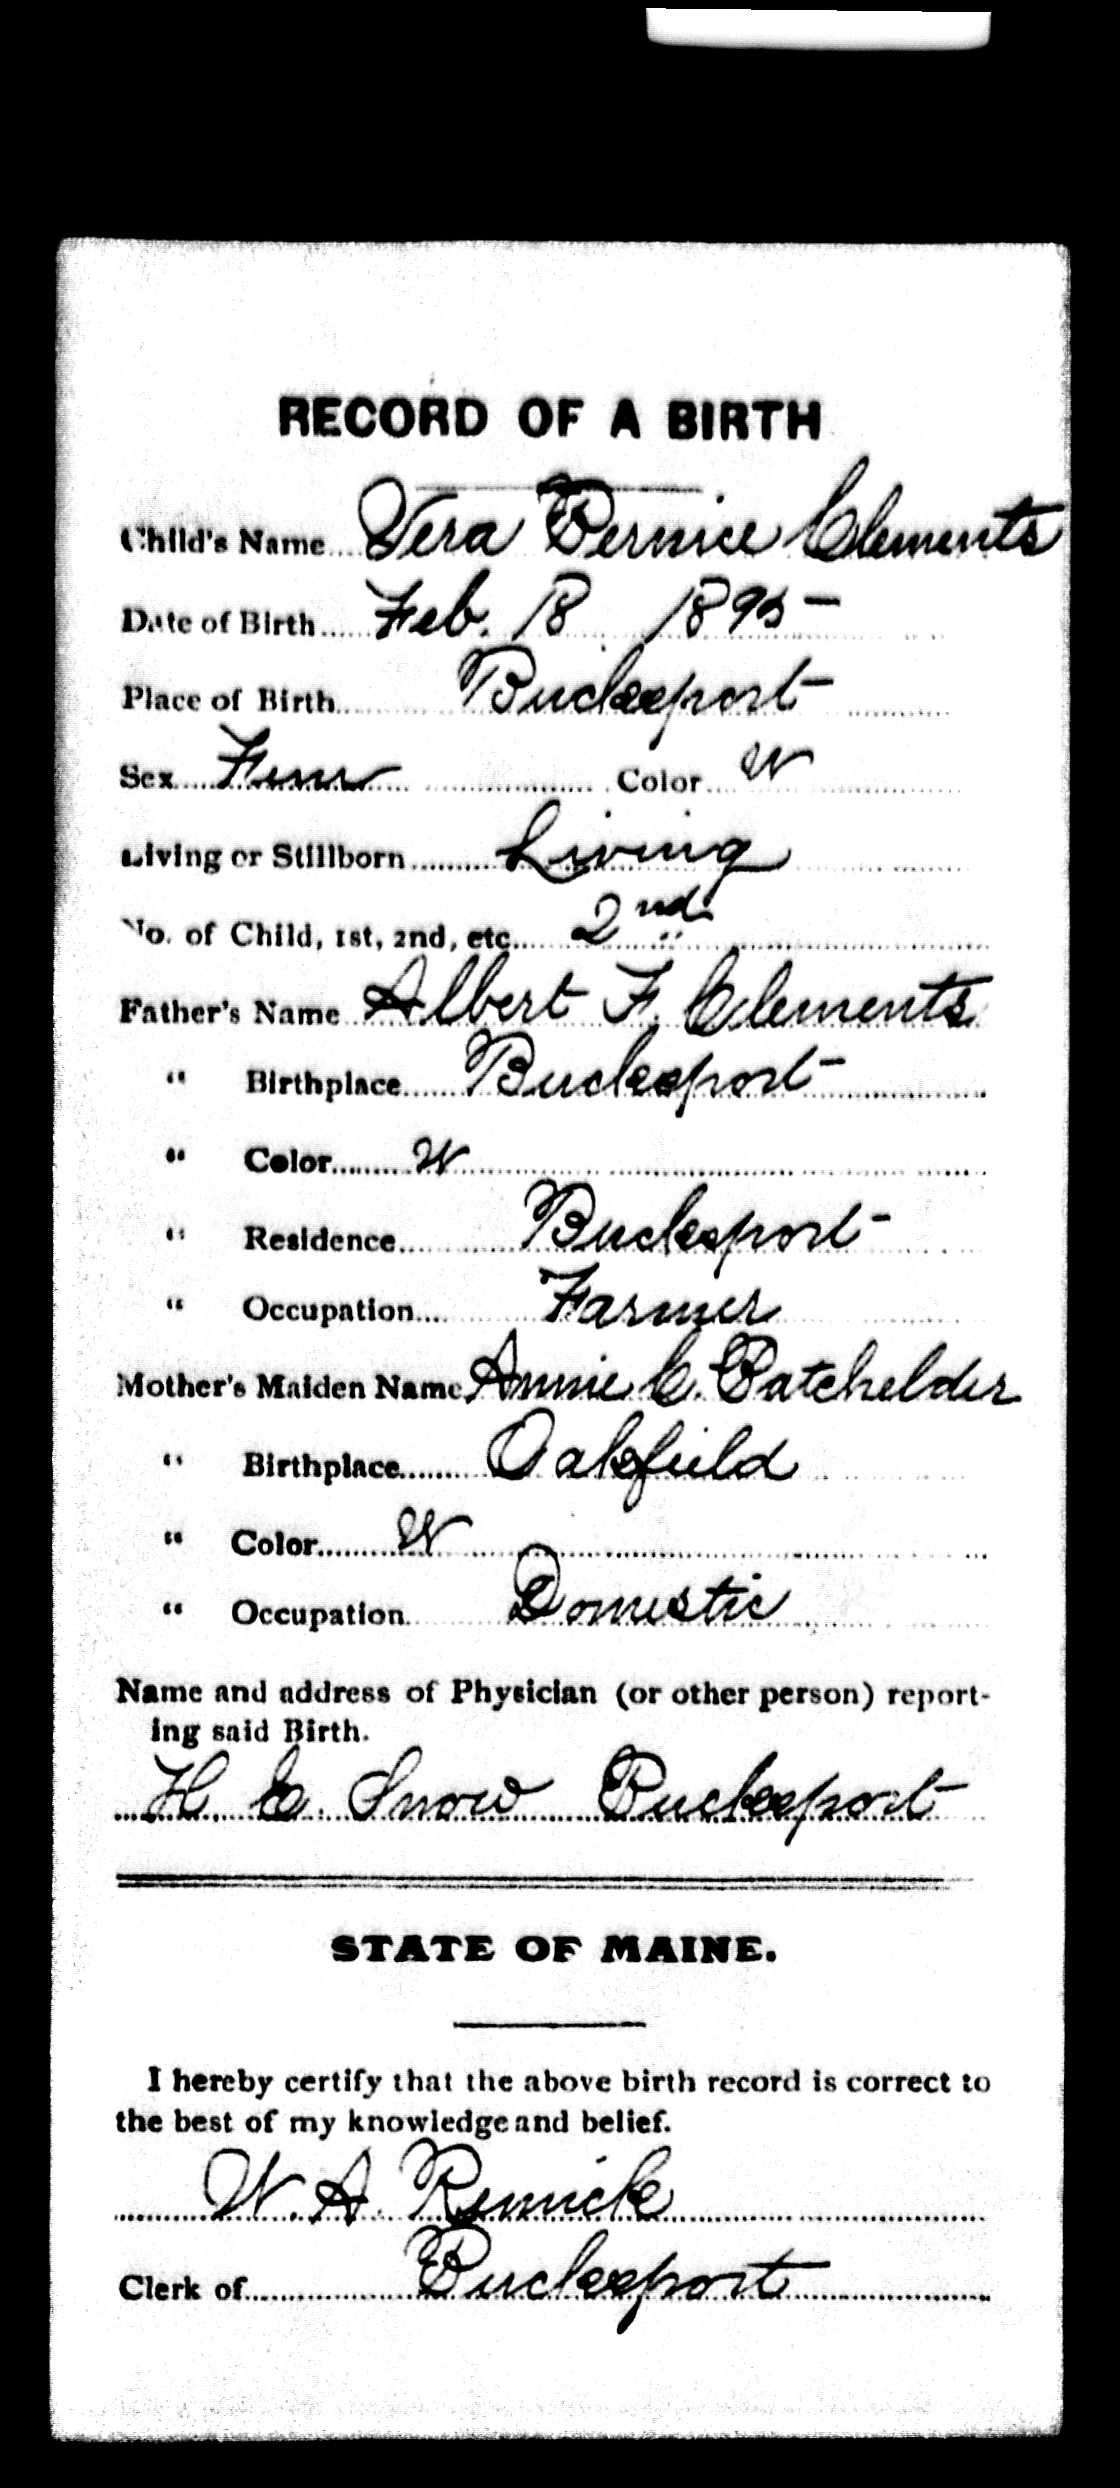 RECORD OF A BIRTH
Child's Name Vera Bernice Clements
Date of Birth Feb. 18 1895
Place of Birth Bucksport
Sex Fem Color W
Living or Stillborn Living
No. of Child, 1st, 2nd, etc. 2nd
Father's Name Albert F. Clements
" Birthplace Bucksport
" Color W
" Residence Bucksport
" Occupation Farmer
Mother's Maiden Name Annie C. Batchelder
" Birthplace Oakfield
" Color W
" Occupation Domestic
Name and address of Physician (or other person) report-
ing said Birth.
H. E. Snow Bucksport
STATE OF MAINE.
I hereby certify that the above birth record is correct to
the best of my knowledge and belief.
W. A. Remick
Clerk of Bucksport